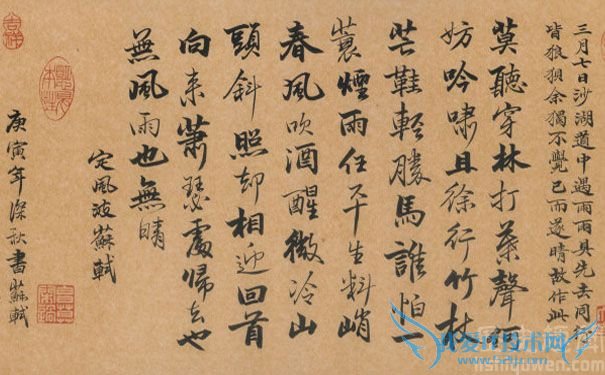 三月七日沙湖道中遇雨雨具先去同行
皆狼狽余獨不覺已而遂晴故作此
莫聽穿林打葉聲何
妨吟嘯且徐行竹杖
芒鞋輕勝馬誰怕一
蓑煙雨任平生料峭
春風吹酒醒微冷山
頭斜照却相迎回首
向來蕭瑟處歸去也
無風雨也無晴
定風波蘇軾
庚寅年深秋書蘇軾
吉祥
lishiquwen.com